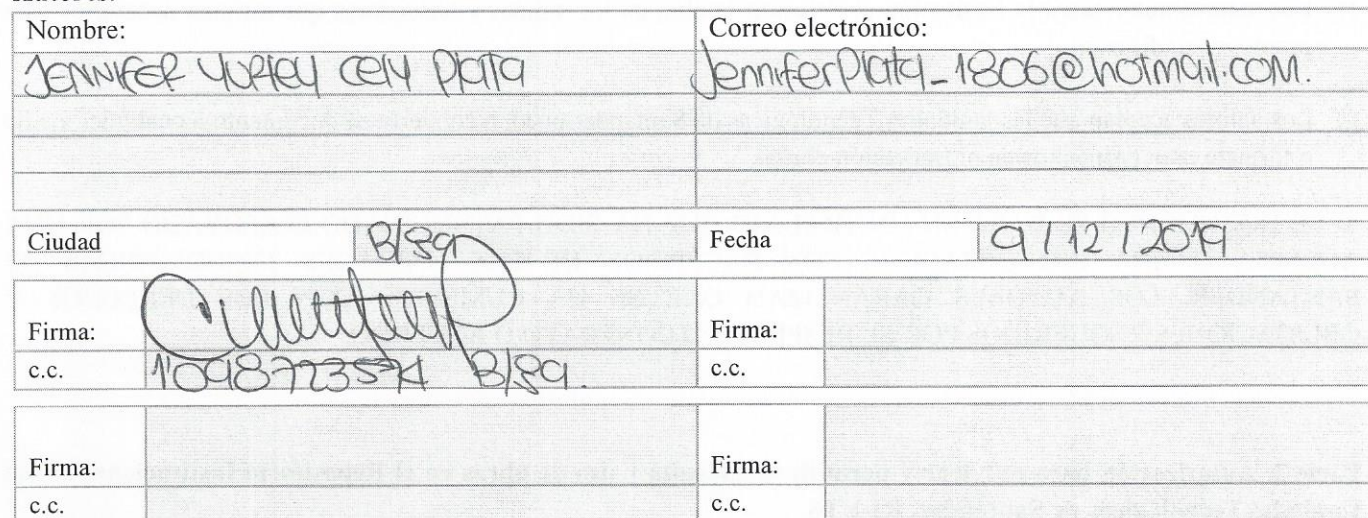 Nombre: Correo electrónico:
JENNIFER YURLEY CELY PLATA JenniferPlata_1806@hotmail.com.
Ciudad B/ga Fecha 9/12/2019
Firma: Firma:
c.c. 1'098723574 B/ga. c.c.
Firma: Firma:
c.c. c.c.